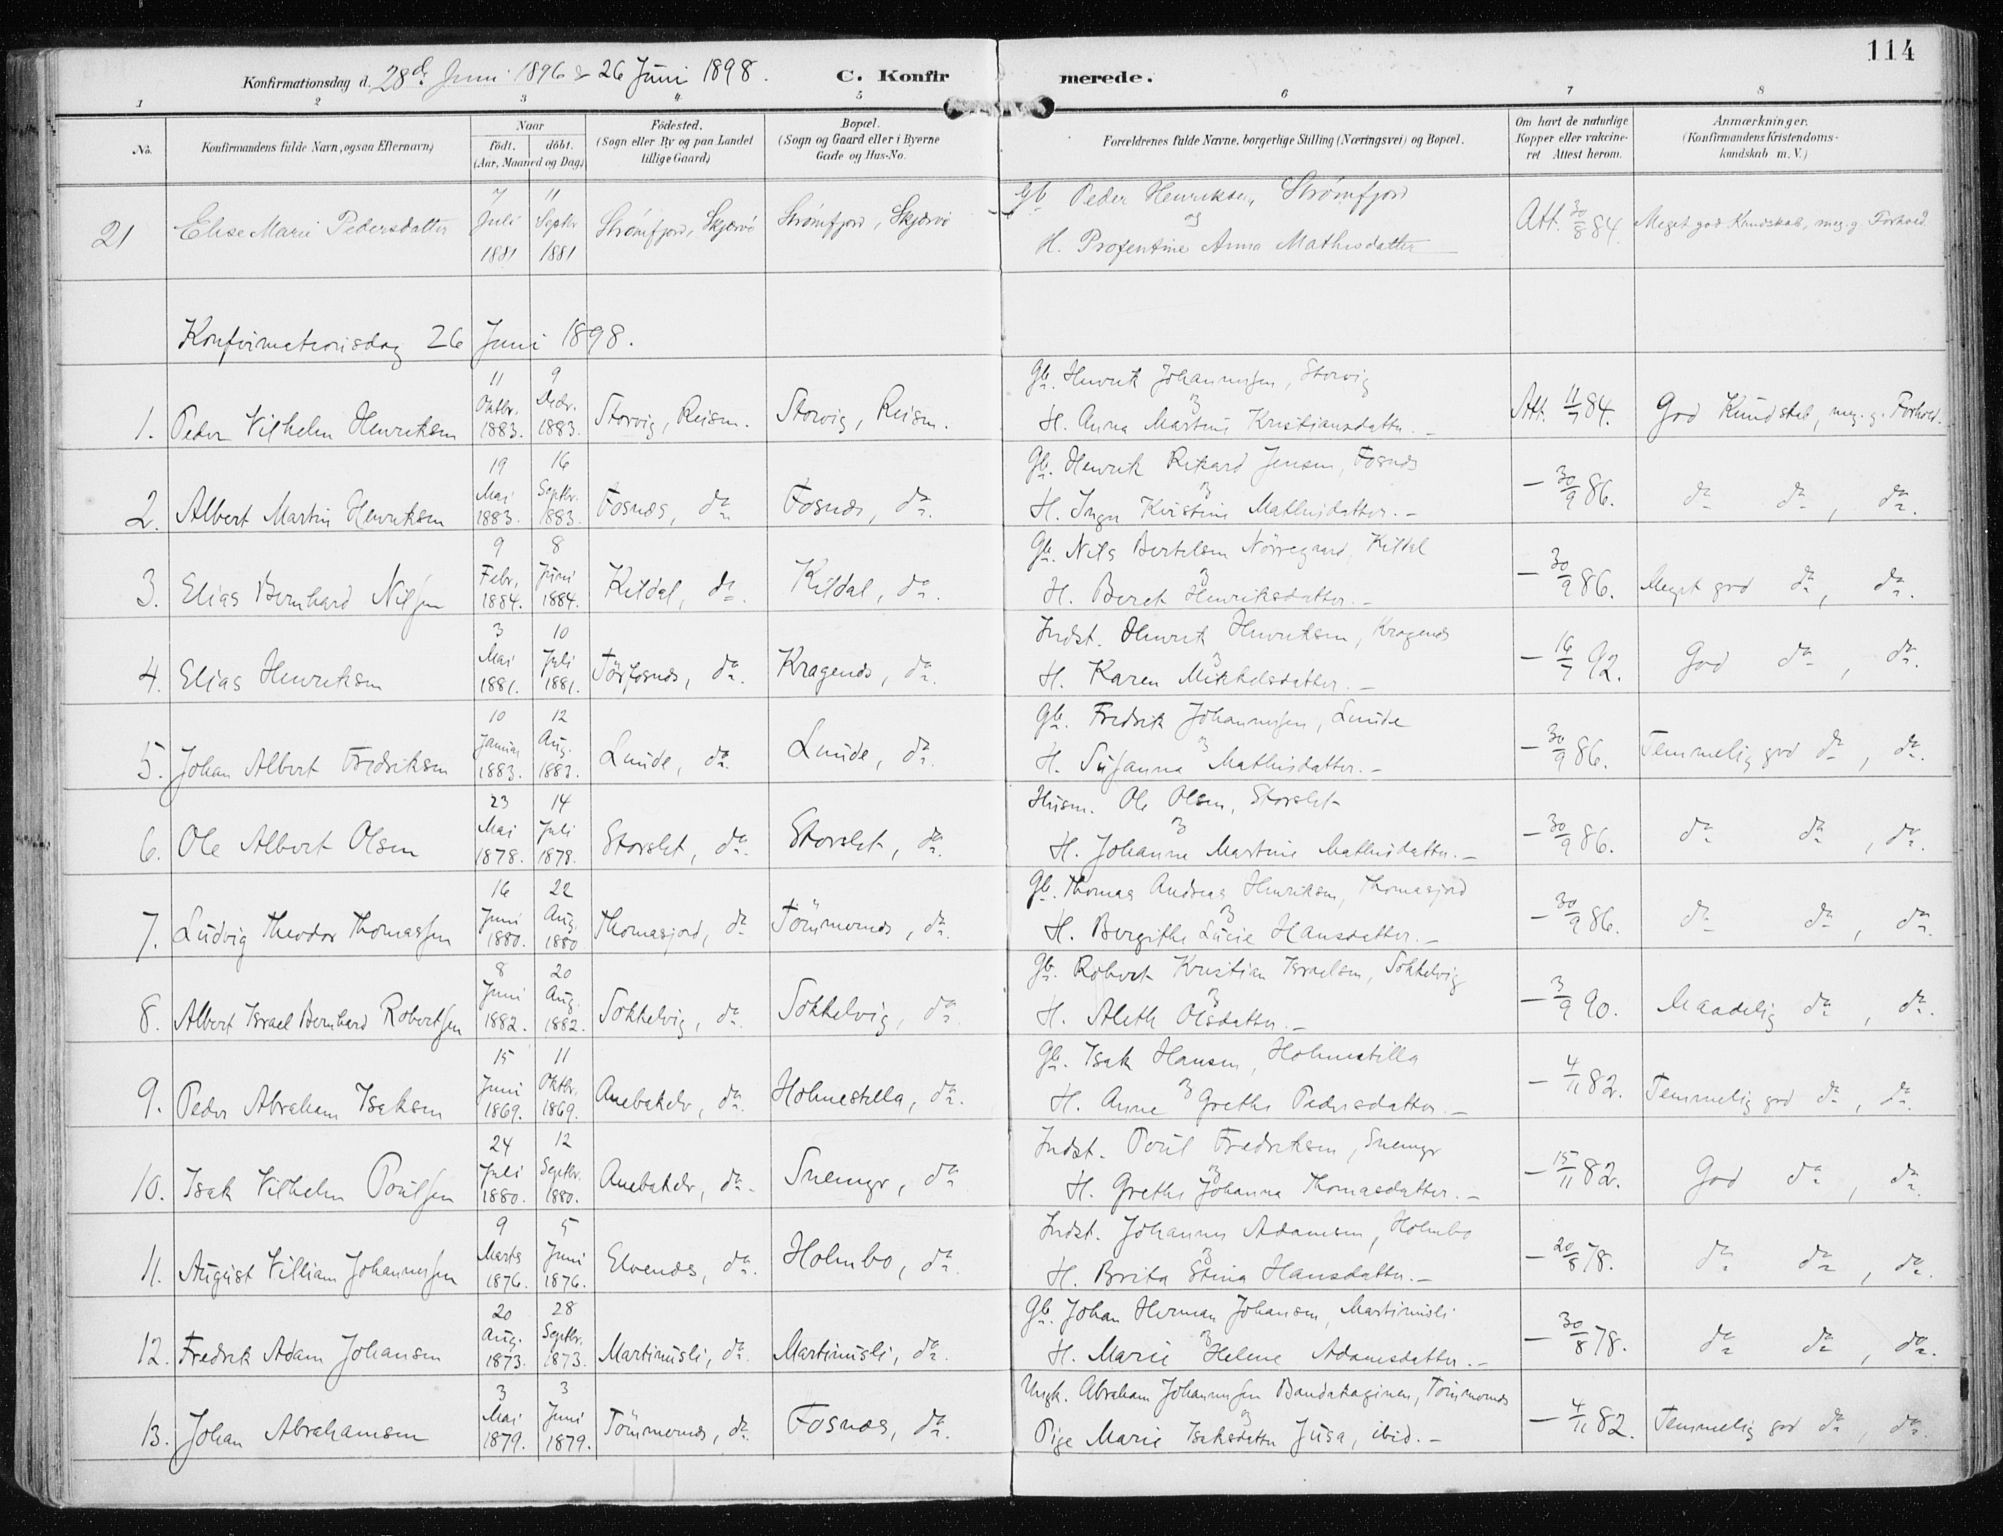 114
Konfirmationsdag d. 28d. Juni 1896 & 26 Juni 1898. C. Konfirmerede.
1 2 3 4 5 6 7 8
No. Konfirmandens fulde Navn, ogsaa Efternavn) Naar født. døbt. (Aar, Maaned og Dag) Födested. (Sogn eller By og paa Landet tillige Gaard) Bopæl. (Sogn og Gaard eller i Byerne Gade og Hus-No. Forældrenes fulde Navne, borgerlige Stilling (Næringsvei) og Bopæl. Om havt de naturlige Kopper eller vakcineret Attest herom. Anmærkninger. (Konfirmandens Kristendomskundskab m. V.)
21 Elise Marie Pedersdatter 7 Juli 1881 11 Septbr 1881 Strømfjord, Skjærvø Strømfjord, Skjærvö Gb Peder Henriksen, Strømfjord og H. Profentine Anna Mathisdatter Att. 30/8 84. Meget god Kundskab, meg. g. Forhold.
Konfirmationsdag 26 Juni 1898.
1. Peder Vilhelm Henriksen 11 Oktbr. 1883. 9 Decbr. 1883. Storvig, Reisen. Storvig, Reisen. Gb. Henrik Johannessen, Storvig og H. Anna Martine Kristiansdatter. – Att. 11/7 84. God Kundskab, meg. g. Forhold.
2. Albert Martin Henriksen 19 Mai 1883. 16 Septbr. 1883. Fosnæs, do. Fosnæs, do. Gb. Henrik Rikard Jensen, Fosnæs og H. Inger Kristine Mathisdatter. – – 30/9 86. do do, do.
3. Elias Bernhard Nilsen 9 Febr. 1884. 8 Juni 1884. Kildal, do. Kildal, do. Gb. Nils Bertelsen Nørregaard, Kildal og H. Beret Henriksdatter. – – 30/9 86. Meget god do, do.
4. Elias Henriksen 3 Mai 1881. 10 Juli 1881. Tørfosnæs, do. Kragenæs, do. Indst. Henrik Henriksen, Kragenæs og H. Karen Mikkelsdatter. – – 16/7 92. God do, do.
5. Johan Albert Fredriksen 10 Januar 1883. 12 Aug. 1883. Lunde, do. Lunde, do. Gb. Fredrik Johannessen, Lunde og H. Susanna Mathisdatter. – – 30/9 86. Temmelig god do, do.
6. Ole Albert Olsen 23 Mai 1878. 14 Juli 1878. Storslet, do. Storslet, do. Husm. Ole Olsen, Storslet og H. Johanne Martine Mathisdatter. – – 30/9 86. do do, do.
7. Ludvig Theodor Thomassen 16 Juni 1880. 22 Aug. 1880 Thomasjord, do Tömmernes, do. Gb. Thomas Andreas Henriksen, Thomasjord og H. Bergithe Lucie Hansdatter. – – 30/9 86. do do, do
8. Albert Israel Bernhard Robertsen 8 Juni 1882. 20 Aug. 1882. Sokkelvig, do. Sokkelvig, do. Gb. Robert Kristian Israelsen, Sokkelvig og H. Aleth Olsdatter. – – 3/9 90. Maadelig do, do.
9. Peder Abraham Isaksen 15 Juni 1869. 11 Oktbr. 1869. Anebakelv, do. Holmestilla, do. Gb. Isak Hansen, Holmestilla og H. Anne Grethe Pedersdatter. – – 4/11 82. Temmelig god do, do.
10. Isak Vilhelm Poulsen 24 Juli 1880. 12 Septbr. 1880. Anebakelv, do. Snemyr, do Indst. Poul Fredriksen, Snemyr og H. Grethe Johanna Thomasdatter. – – 15/11 82. God do, do.
11. August William Johannessen 9 Marts 1876. 5 Juni 1876. Elvenæs, do. Holmbo, do. Indst. Johannes Adamsen, Holmbo og H. Brita Stina Hansdatter. – – 20/8 78. do do, do.
12. Fredrik Adam Johansen 20 Aug. 1873. 28 Septbr. 1873. Martinusli, do. Martinusli, do. Gb. Johan Herman Johansen, Martinusli og H. Marie Helene Adamsdatter. – – 30/8 78. do do, do.
13. Johan Abrahamsen 3 Mai 1879. 3 Juni 1879. Tömmernes, do. Fosnæs, do. Ungk. Abraham Johannessen, Tömmernes og Pige Marie Isaksdatter Jusa, ibid. – – 4/11 82. Temmelig god do, do.